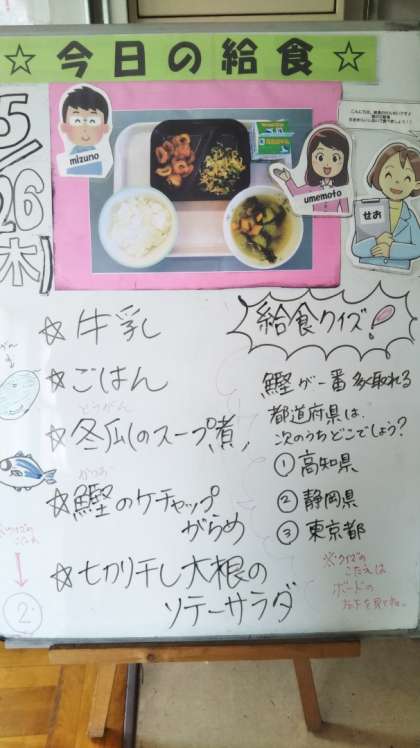 ☆今日の給食☆
5/26(木)
mizuno
umemoto
せお
☆牛乳
☆ごはん
とうがん
☆冬瓜のスープ煮
かつお
☆鰹のケチャップ
がらめ
☆切り干し大根の
ソテーサラダ
給食クイズ!
鰹が一番多く取れる
都道府県は、
次のうちどこでしょう?
①高知県
②静岡県
③東京都
※クイズの
こたえは
ボードの
左下を見てね。
②